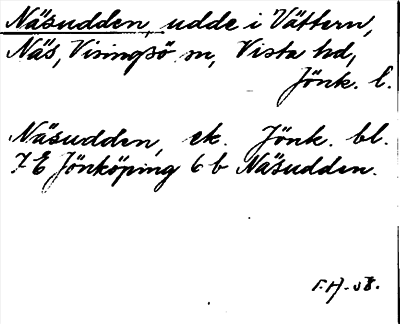 Näsudden, udde i Vättern,
Näs, Visingsö sn, Vista hd,
Jönk. l.
Näsudden, ek. Jönk. bl.
7 E Jönköping 6 b Näsudden.
F.H. -58.